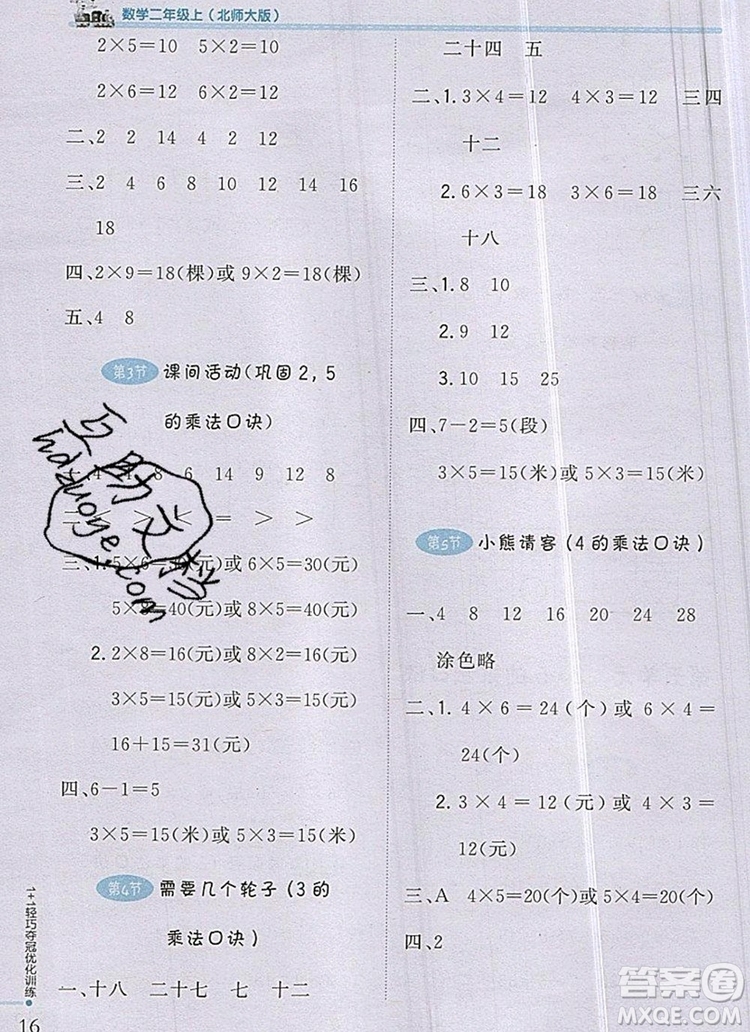 数学二年级上(北师大版)
2×5=10 5×2=10
2×6=12 6×2=12
二、2 2 14 4 2 12
三、2 4 6 8 10 12 14 16
18
四、2×9=18(棵)或 9×2=18(棵)
五、4 8
第3节 课间活动(巩固2,5
的乘法口诀)
8 6 14 9 12 8
= > >
三、1.5×6=30(元)或 6×5=30(元)
5×8=40(元)或 8×5=40(元)
2.2×8=16(元)或 8×2=16(元)
3×5=15(元)或 5×3=15(元)
16+15=31(元)
四、6-1=5
3×5=15(米)或 5×3=15(米)
第4节 需要几个轮子(3的
乘法口诀)
一、十八 二十七 七 十二
二十四 五
二、1.3×4=12 4×3=12 三四
十二
2.6×3=18 3×6=18 三六
十八
三、1.8 10
2.9 12
3.10 15 25
四、7-2=5(段)
3×5=15(米)或 5×3=15(米)
第5节 小熊请客(4的乘法口诀)
一、4 8 12 16 20 24 28
涂色略
二、1.4×6=24(个)或 6×4=
24(个)
2.3×4=12(元)或 4×3=
12(元)
三、A 4×5=20(个)或 5×4=20(个)
四、2
1+1轻巧夺冠优化训练
16
互助文档
hdzuoye.com
答案圈
MXQE.COM